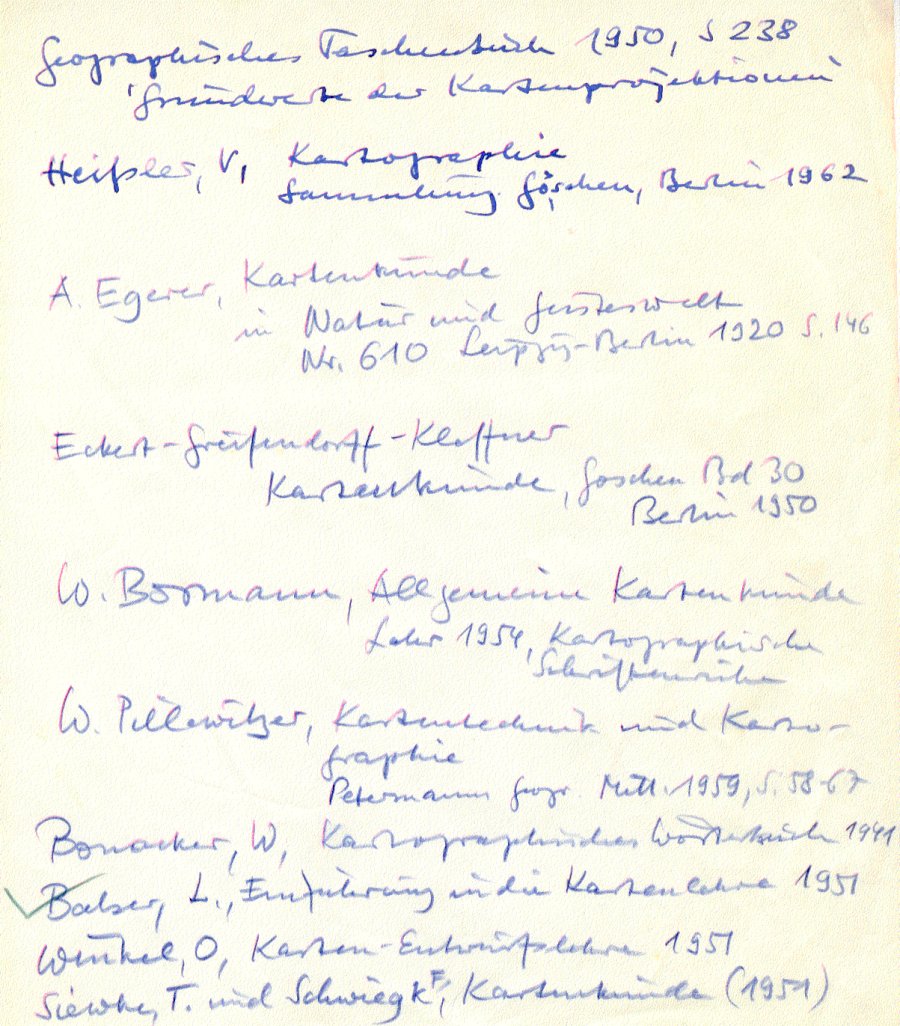 Geographisches Taschenbuch 1950, S 238
'Grundwerte der Kartenprojektionen'
Heißler, V, Kartographie
Sammlung Göschen, Berlin 1962
A. Egerer, Kartenkunde
in Natur und Geisteswelt
Nr. 610 Leipzig-Berlin 1920 S. 146
Eckert-Greifendorff-Kleffner
Kartenkunde, Goschen Bd 30
Berlin 1950
W. Bormann, Allgemeine Kartenkunde
Lahr 1954, Kartographische
Schriftenreihe
W. Pillewitzer, Kartentechnik und Karto-
graphie
Petermanns Geogr. Mitt. 1959, S. 58-67
Bonacker, W, Kartographisches Wörterbuch 1941
Balser, L., Einführung in die Kartenlehre 1951
Winkel, O, Karten-Entwurfslehre 1951
Siewke, T. und Schwiegk F, Kartenkunde (1951)